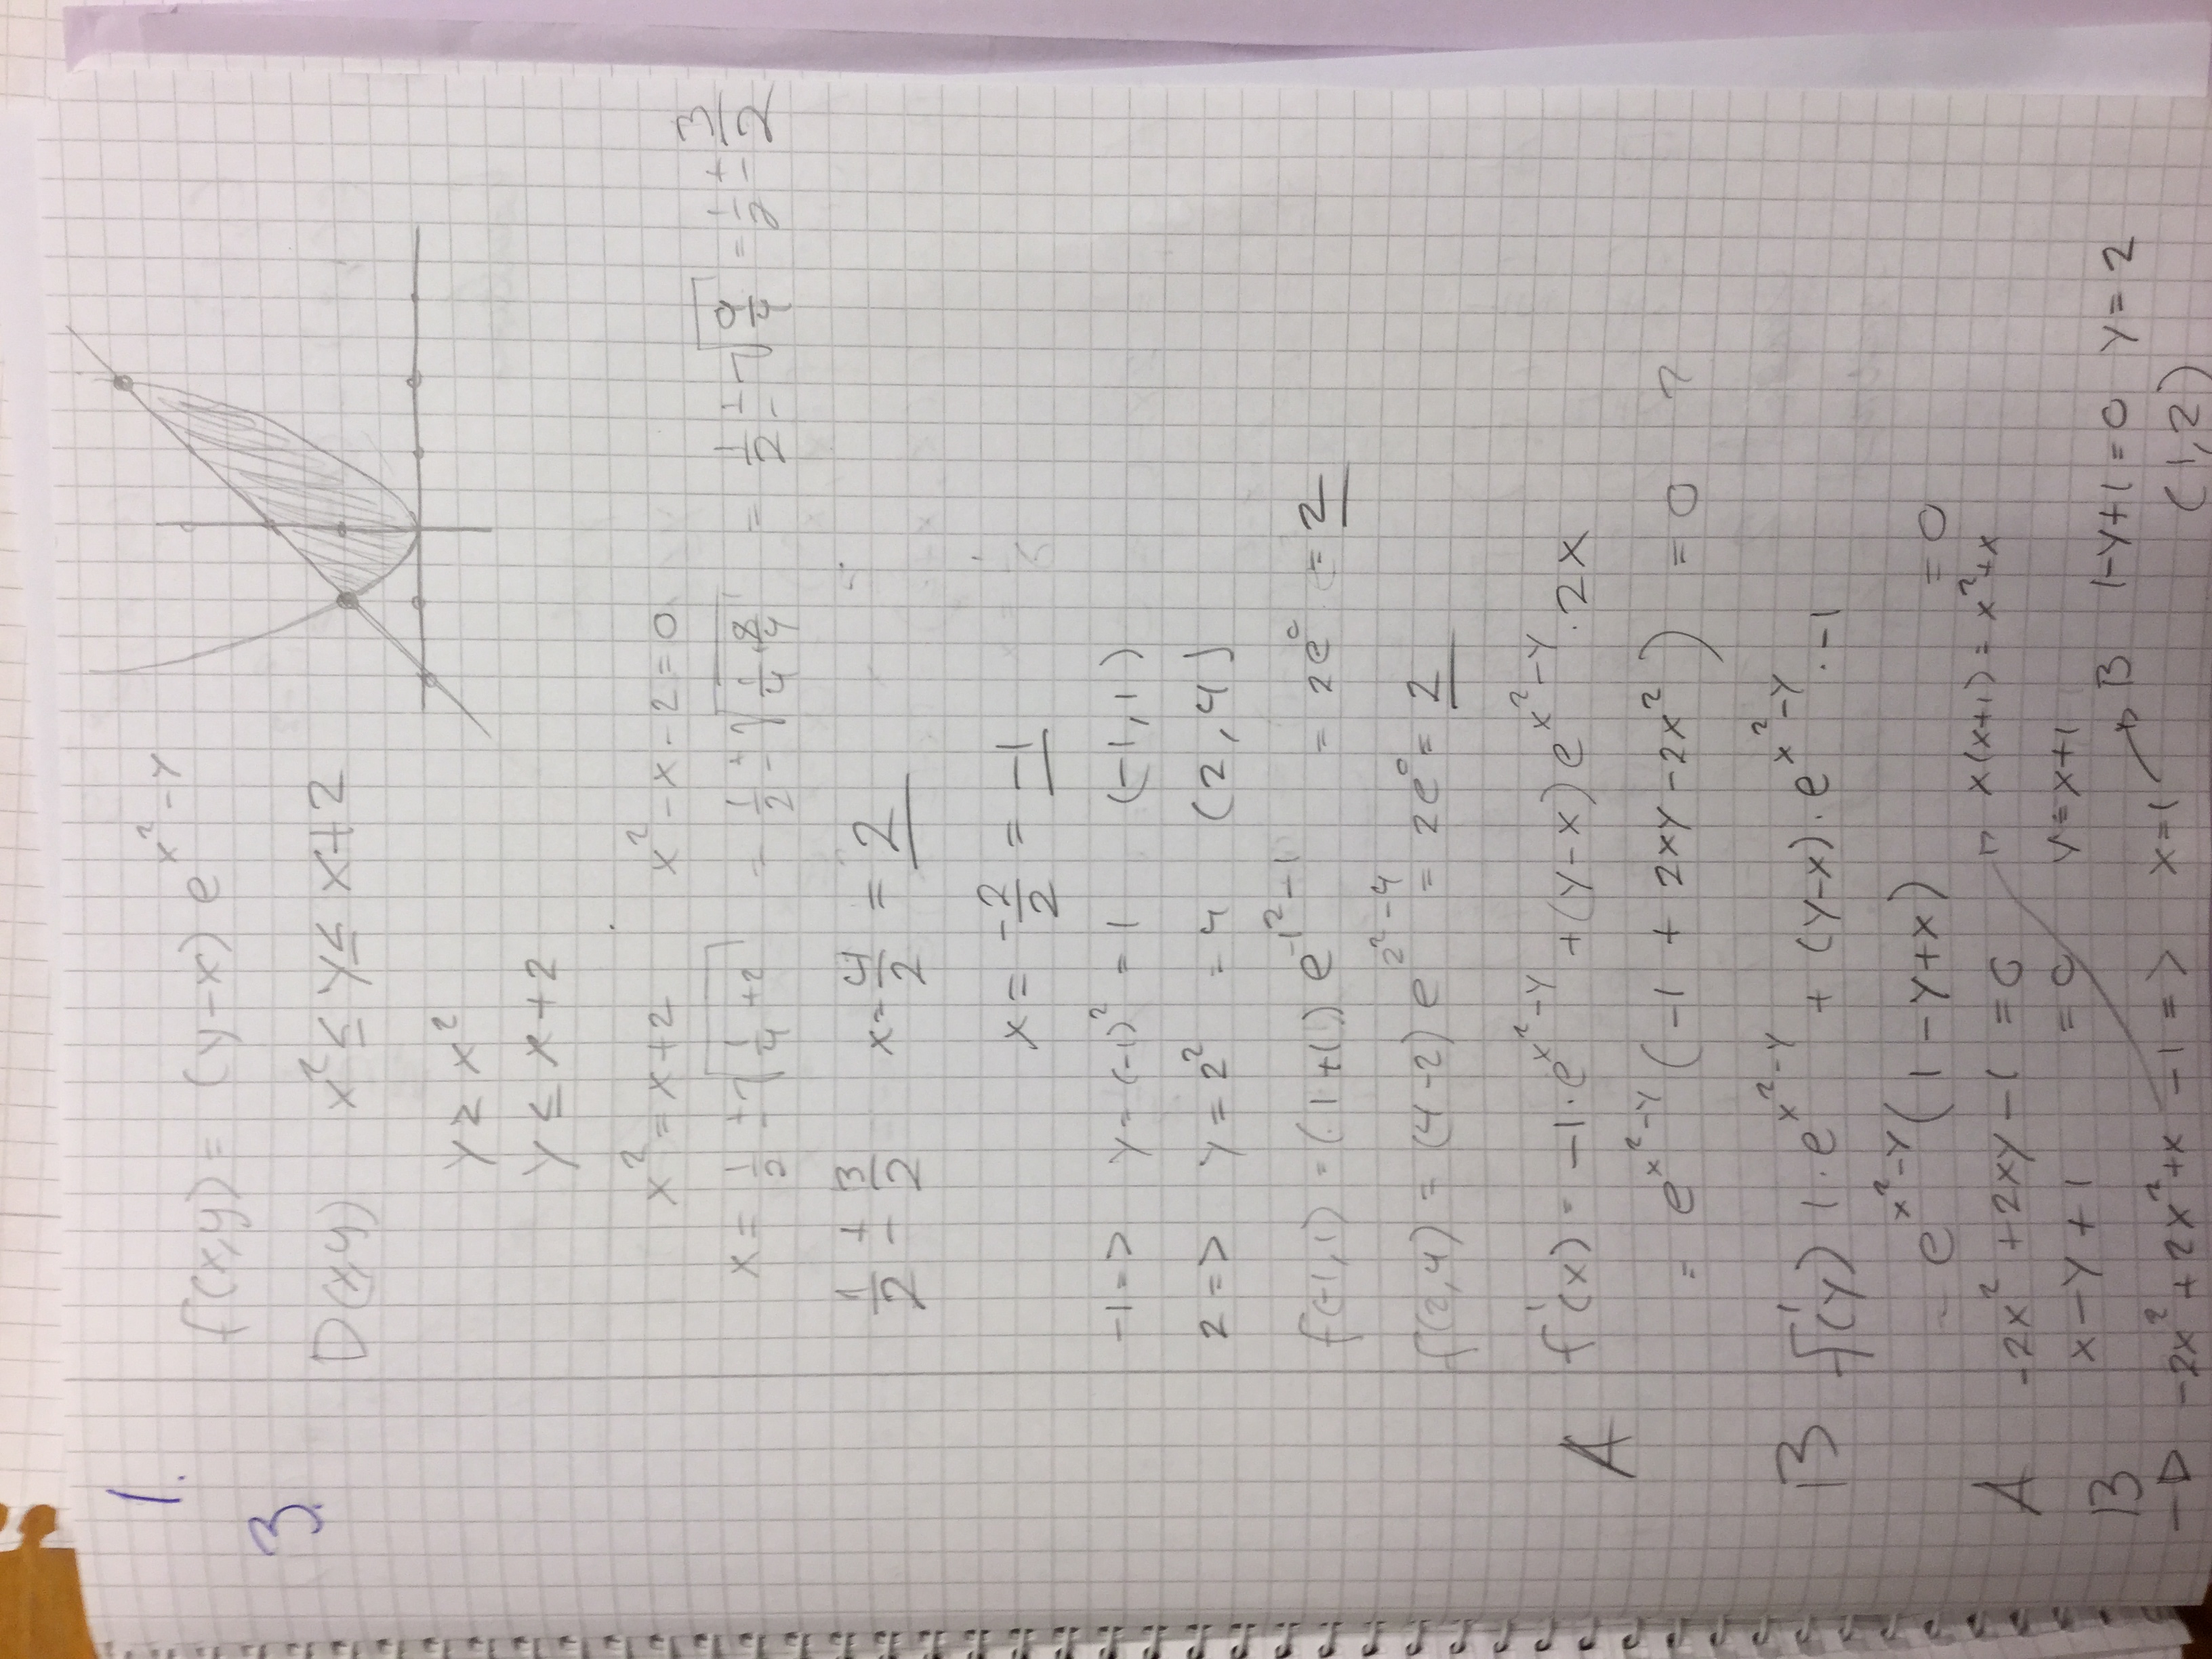 1.
f(x,y) = (y-x) e^{x²-y}
3.
D(x,y) x² ≤ y ≤ x+2
y ≥ x²
y ≤ x+2
x² = x+2 x² - x - 2 = 0
x = 1/2 ± √(1/4 + 2) = 1/2 ± √(1/4 + 8/4) = 1/2 ± √(9/4) = 1/2 ± 3/2
1/2 ± 3/2 x = 4/2 = 2
x = -2/2 = -1
-1 => y = (-1)² = 1 (-1,1)
2 => y = 2² = 4 (2,4)
f(-1,1) = (1+1) e^{-1²-1} = 2e⁰ = 2
f(2,4) = (4-2) e^{2²-4} = 2e⁰ = 2
A f'(x) = -1·e^{x²-y} + (y-x) e^{x²-y} · 2x
= e^{x²-y} (-1 + 2xy - 2x²) = 0 ?
B f'(y) 1·e^{x²-y} + (y-x)·e^{x²-y} · -1
= e^{x²-y} (1-y+x) = 0
A -2x² + 2xy - 1 = 0 x(x+1) = x²+x
B x - y + 1 = 0 y = x+1
-2x² + 2x² + x - 1 => x=1 → B 1-y+1=0 y=2
(1,2)